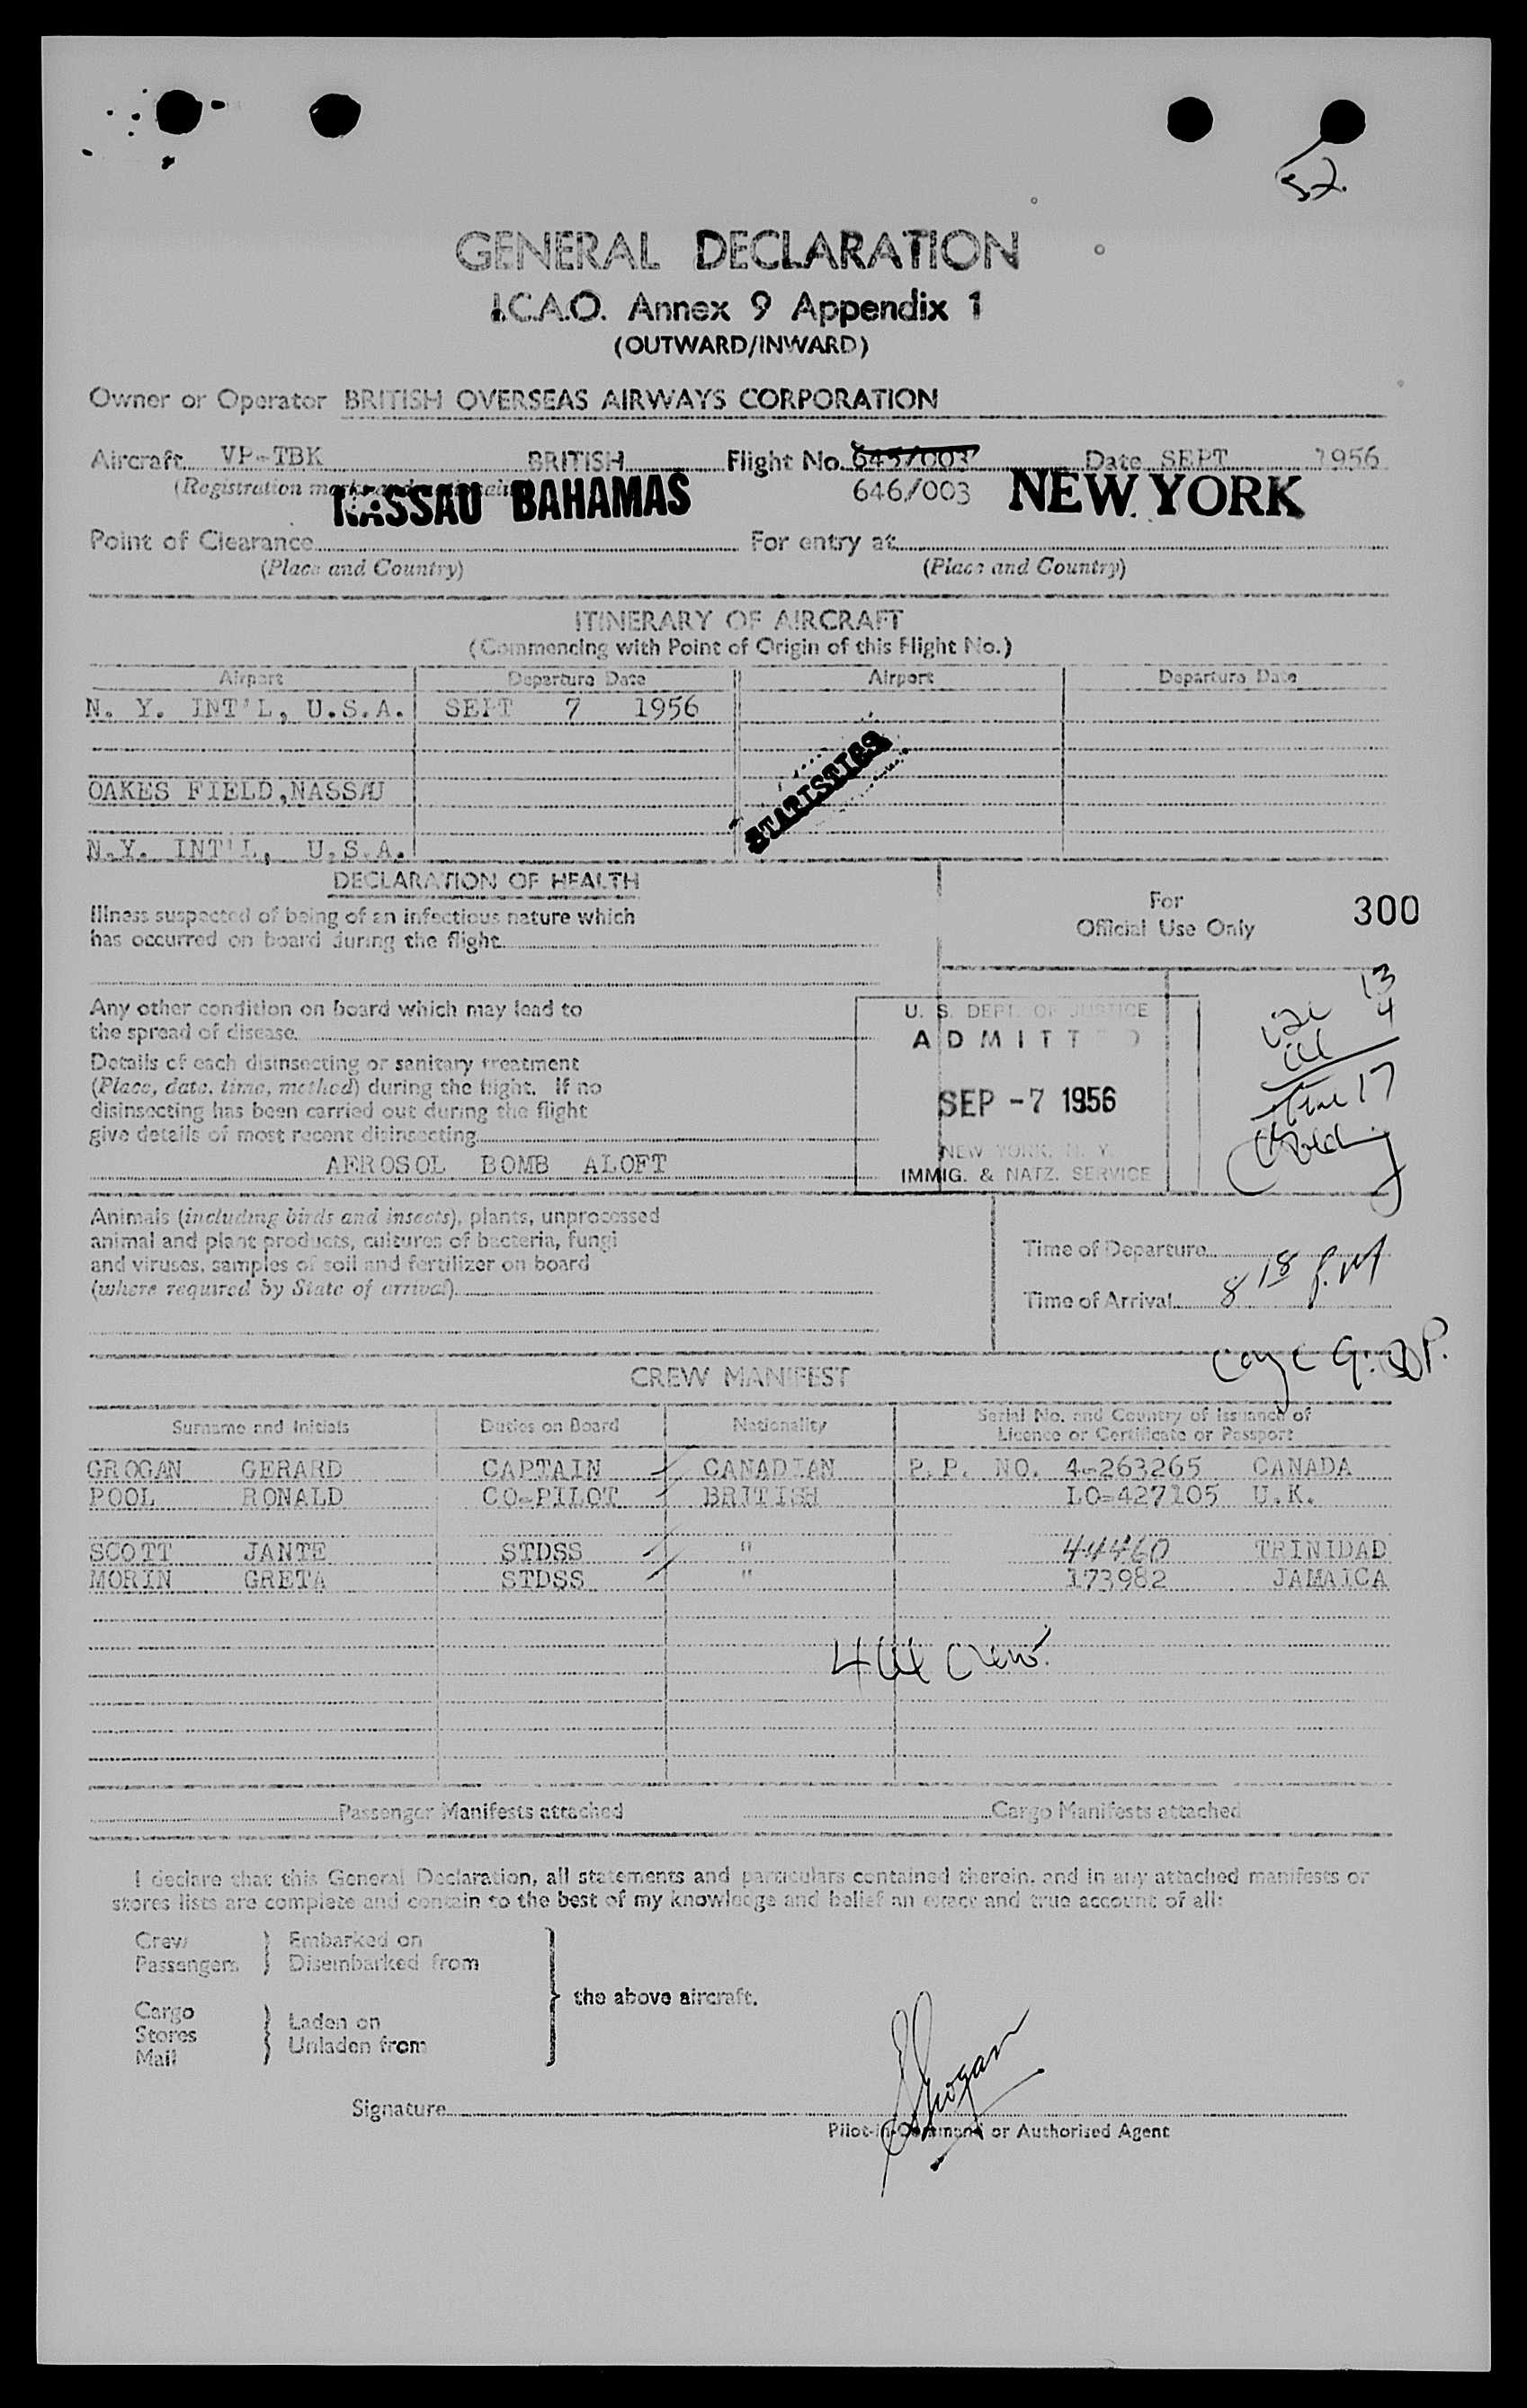 52.
GENERAL DECLARATION
I.C.A.O. Annex 9 Appendix 1
(OUTWARD/INWARD)
Owner or Operator BRITISH OVERSEAS AIRWAYS CORPORATION
Aircraft VP-TBK BRITISH Flight No. 645/003 Date SEPT 1956
(Registration
646/003
NASSAU BAHAMAS NEW YORK
Point of Clearance For entry at
(Place and Country) (Place and Country)
ITINERARY OF AIRCRAFT
(Commencing with Point of Origin of this Flight No.)
Airport Departure Date Airport Departure Date
N. Y. INT'L, U.S.A. SEPT 7 1956
STATISTICS
OAKES FIELD,NASSAU
N.Y. INT'L, U.S.A.
DECLARATION OF HEALTH
Illness suspected of being of an infectious nature which
has occurred on board during the flight
For
Official Use Only
300
Any other condition on board which may lead to
the spread of disease
Details of each disinsecting or sanitary treatment
(Place, date, time, method) during the flight. If no
disinsecting has been carried out during the flight
give details of most recent disinsecting
AEROSOL BOMB ALOFT
U. S. DEPT. OF JUSTICE
ADMITTED
SEP -7 1956
NEW YORK, N. Y.
IMMIG. & NATZ. SERVICE
13
4
17
Animals (including birds and insects), plants, unprocessed
animal and plant products, cultures of bacteria, fungi
and viruses, samples of soil and fertilizer on board
(where required by State of arrival)
Time of Departure
Time of Arrival 8 18 P.M
CREW MANIFEST
Surname and Initials Duties on Board Nationality Serial No. and Country of Issuance of
Licence or Certificate or Passport
GROGAN GERARD CAPTAIN CANADIAN P.P. NO. 4-263265 CANADA
POOL RONALD CO-PILOT BRITISH LO-427105 U.K.
SCOTT JANTE STDSS " 44460 TRINIDAD
MORIN GRETA STDSS " 173982 JAMAICA
4 Crew.
Passenger Manifests attached Cargo Manifests attached
I declare that this General Declaration, all statements and particulars contained therein, and in any attached manifests or
stores lists are complete and contain to the best of my knowledge and belief an exact and true account of all:
Crew Embarked on
Passengers Disembarked from
the above aircraft.
Cargo Laden on
Stores Unladen from
Mail
Signature Grogan
Pilot-in-Command or Authorised Agent